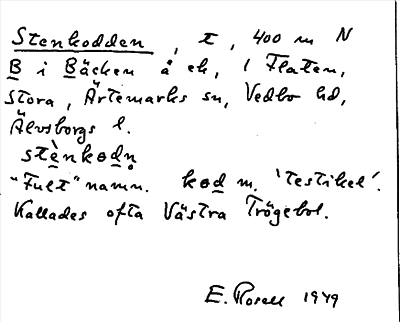 Stenkodden, t, 400 m N
B i Bäcken å ek, i Flaten,
Stora, Ärtemarks sn, Vedbo hd,
Älvsborgs l.
stènkodn̥
"Fult" namn. kod m. 'testikel'.
Kallades ofta Västra Trögebol.
E. Rosell 1949